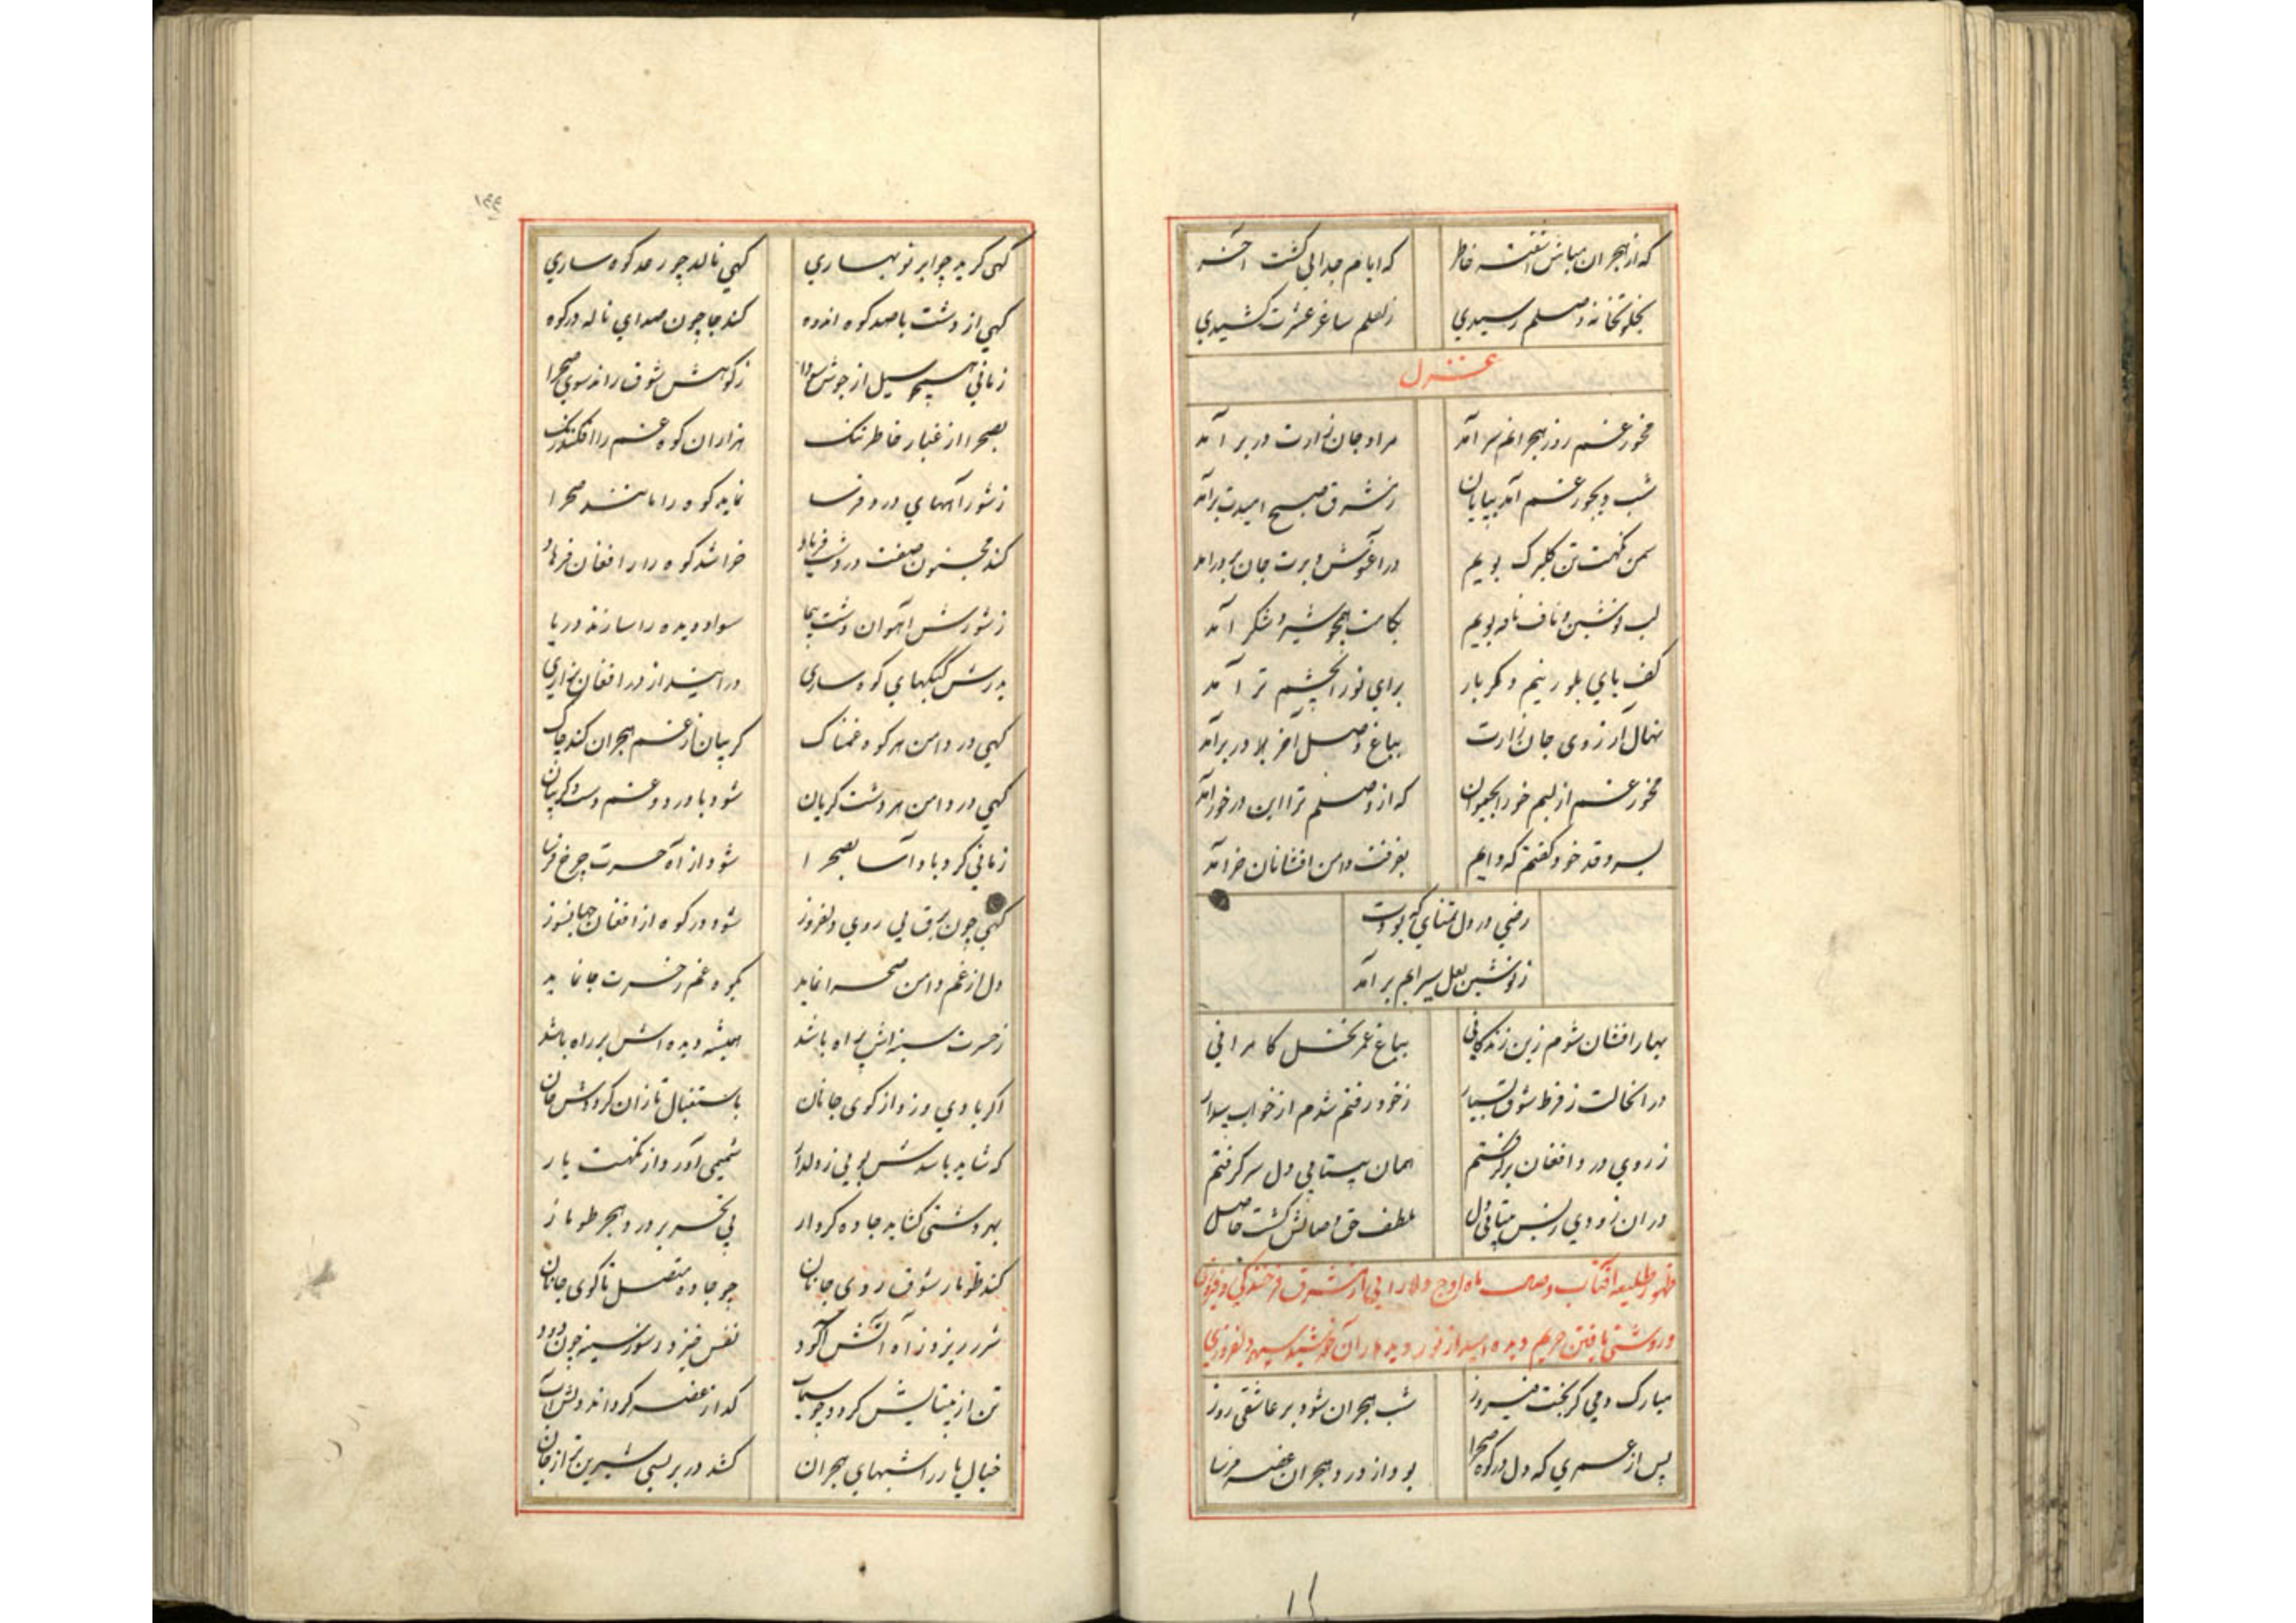 که از هجران مباش آشفته خاطر
که ایام جدایی گشت آخر
بخلوتخانه وصلم رسیدی
ز لعلم ساغر عشرت کشیدی
غزل
مخور غم روز هجرانم سر آمد
مراد جان زارت در بر آمد
شب دیجور غم آمد بپایان
ز مشرق صبح امیدت برآمد
سمن نکهت تن گلبرگ بویم
در آغوش و برت جان پرور آمد
لب نوشین و ناف نافه بویم
بکامت همچو شیر و شکر آمد
کف پای بلورینم دکر بار
برای نور چشم تر آمد
نهال آرزوی جان زارت
بباغ وصل آخر در بر آمد
مخور غم از لبم خور آب حیوان
که از وصلم ترا این در خور آمد
بسرو قد خود گفتم که دایم
بفرقت دامن افشانان خرامد
رضی در دل تمنای که بودت
ز نوشین لعل سیرابم بر آمد
بهار افشان شوم زین زندگانی
بباغ عمر نخل کامرانی
در آنحالت ز فرط شوق بسیار
ز خود رفتم شدم از خواب بیدار
ز روی درد افغان برگرفتم
همان بیتابی دل سر گرفتم
در آن زودی ز بس بیتابی دل
بلطف حق وصالش گشت حاصل
ظهور طلیعه آفتاب وصال ماه اوج دلارایی از مشرق فرخندگی و فیروزی
و روشنی یافتن حریم دیده امید از نور دیدار آن خورشید سپهر دلفروزی
مبارک دمی کز بخت فیروز
شب هجران شود بر عاشقی روز
پس از عمری که دل در کوه صحرا
بود از درد هجران غصه فرسا
۱۴۴
گهی گرید چو ابر نوبهاری
گهی نالد چو رعد کوهساری
گهی از دشت با صد کوه اندوه
کند جا چون صدای ناله در کوه
زمانی همچو سیل از جوش سودا
ز کوهش شوق راند سوی صحرا
بصحرا از غبار خاطر تنگ
هزاران کوه غم را افکند رنگ
ز شور آههای درد فرسا
نماید کوه را مانند صحرا
کند مجنون صفت در دشت فریاد
خراشد کوه را از افغان فرهاد
ز شورش آهوان دشت پیما
سواد دیده را سازند دریا
بدردش کبکهای کوهساری
در آیند از در افغان و زاری
گهی در دامن هر کوه غمناک
گریبان از غم هجران کند چاک
گهی در دامن هر دشت گریان
شود با درد و غم دست و گریبان
زمانی گردباد آسا بصحرا
شود از آه حسرت چرخ فرسا
گهی چون برق بی روی دلفروز
شود در کوه از افغان جهانسوز
دل از غم دامن صحرا نماید
بکوه غم ز حسرت جا نماید
ز حسرت سینه اش پر آه باشد
همیشه دیده اش بر راه باشد
اگر بادی وزد از کوی جانان
باستقبال تازان گرددش جان
که شاید باشدش بویی ز دلدار
شمیمی آورد از نکهت یار
بهر دشتی گشاید جاده کردار
پی تحریر درد هجر طومار
کند طومار شوق روی جانان
چو جاده متصل تا کوی جانان
شرر ریزد ز آه آتش آلود
نفس خیزد ز سوز سینه چون دود
تن از بیتابیش گردد چو سیماب
گداز غصه گرداند دلش آب
خیال یار را شبهای هجران
کشد در بر بسی شیرین تر از جان